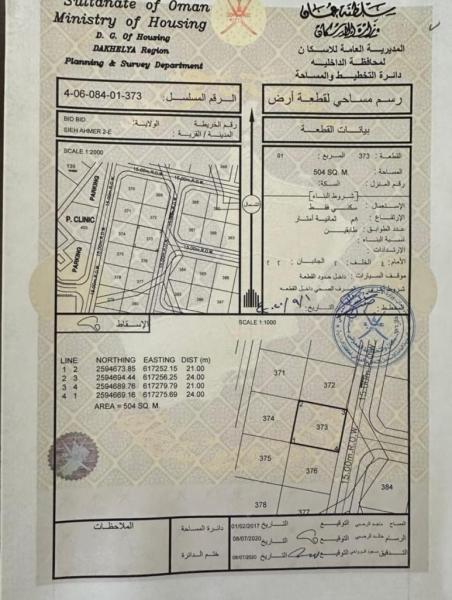 Sultanate of Oman
Ministry of Housing
D. G. Of Housing
DAKHELYA Region
Planning & Survey Department
سلطنة عمان
وزارة الإسكان
المديرية العامة للاسكان
لمحافظة الداخلية
دائرة التخطيط والمساحة
4-06-084-01-373 الرقم المسلسل:
رسم مساحي لقطعة أرض
BID BID. رقم الخريطة الولاية:
SIEH AHMER 2-E المدينة / القرية:
بيانات القطعة
SCALE 1:2000
PARKING
P. CLINIC
PARKING
15.00m.R.O.W.
الشمال
القطعة: 373 المربع: 01
المساحة: 504 SQ. M.
رقم المنزل: السكة:
شروط البناء
الإستعمال: سكني فقط
الإرتفاع: ٨م ثمانية أمتار
عدد الطوابق: طابقين
نسبة البناء:
الإرتدادات:
الأمام: ٤ الخلف: ٢ الجانبان: ٢ ٢
موقف السيارات: داخل حدود القطعة
الصرف الصحي داخل القطعة
المخطط: التاريخ:
الإسقاط:
SCALE 1:1000
LINE NORTHING EASTING DIST (m)
1 2 2594673.85 617252.15 21.00
2 3 2594694.44 617256.25 24.00
3 4 2594689.76 617279.79 21.00
4 1 2594669.16 617275.69 24.00
AREA = 504 SQ. M.
371
372
374
373
375
376
378
377
384
15.00m.R.O.W.
15.00m.R.O.W.
الملاحظات
دائرة المساحة
ختم الدائرة
المساح التوقيع التاريخ 01/02/2017
الرسام التوقيع التاريخ 08/07/2020
التدقيق التوقيع التاريخ 08/07/2020